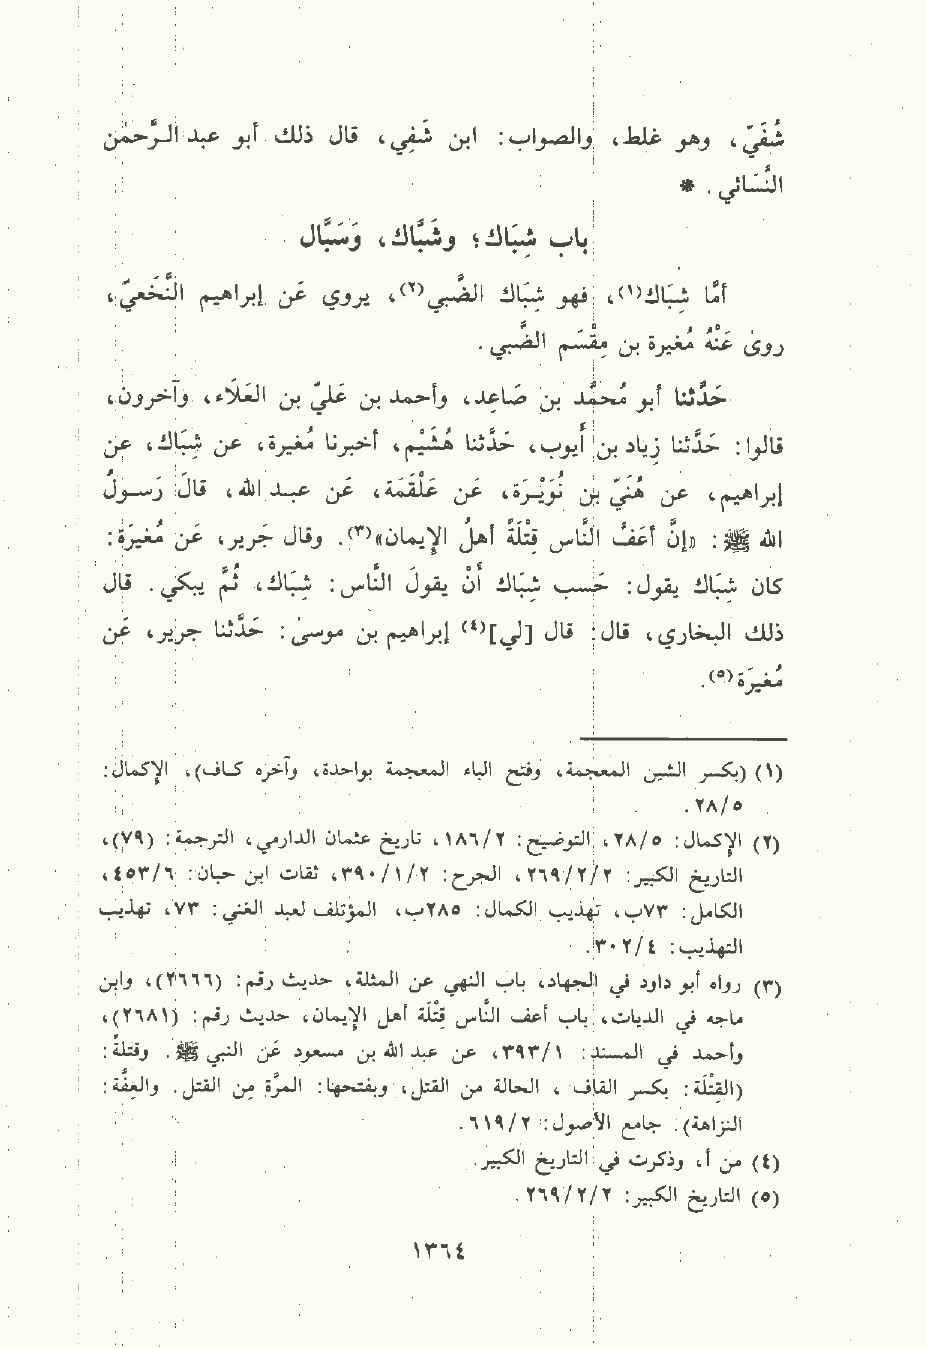 شُفَيّ، وهو غلط، والصواب: ابن شَفِي، قال ذلك أبو عبد الـرَّحمٰن
النَّسَائي. *
باب شِبَاك؛ وشَبَّاك، وَسَبَّال
أمَّا شِبَاك(١)، فهو شِبَاك الضَّبي(٢)، يروي عَن إبراهيم النَّخَعيّ،
روىٰ عَنْهُ مُغيرة بن مِقْسَم الضَّبي.
حَدَّثنا أبو مُحمَّد بن صَاعِد، وأحمد بن عَليّ بن العَلَاء، وآخرون،
قالوا: حَدَّثنا زِياد بن أيوب، حَدَّثنا هُشَيْم، أخبرنا مُغيرة، عن شِبَاك، عن
إبراهيم، عن هُنَيّ بن نُوَيْـرَة، عن عَلْقَمَة، عَن عبـد الله، قالَ رَسـولُ
الله ﷺ: «إنَّ أعَفَّ النَّاس قِتْلَةً أهلُ الإيمان»(٣). وقال جَرير، عَن مُغيرَة:
كان شِبَاك يقول: حَسب شِبَاك أنْ يقولَ النَّاس: شِبَاك، ثُمَّ يبكي. قال
ذلك البخاري، قال: قال [لي](٤) إبراهيم بن موسىٰ: حَدَّثنا جرير، عَن
مُغيرَة(٥).
(١) (بكسر الشين المعجمة، وفتح الباء المعجمة بواحدة، وآخره كـاف)، الإكمال:
٥/٢٨.
(٢) الإكمال: ٥/٢٨، التوضيح: ٢/١٨٦، تاريخ عثمان الدارمي، الترجمة: (٧٩)،
التاريخ الكبير: ٢/٢/٢٦٩، الجرح: ٢/١/٣٩٠، ثقات ابن حبان: ٦/٤٥٣،
الكامل: ٧٣ب، تهذيب الكمال: ٢٨٥ب، المؤتلف لعبد الغني: ٧٣، تهذيب
التهذيب: ٤/٣٠٢.
(٣) رواه أبو داود في الجهاد، باب النهي عن المثلة، حديث رقم: (٢٦٦٦)، وابن
ماجه في الديات، باب أعف النَّاس قِتْلَة أهل الإيمان، حديث رقم: (٢٦٨١)،
وأحمد في المسند: ١/٣٩٣، عن عبد الله بن مسعود عن النبي ﷺ. وقتلةً:
(القِتْلَة: بكسر القاف، الحالة من القتل، وبفتحها: المرَّة من القتل. والعِفَّة:
النزاهة). جامع الأصول: ٢/٦١٩.
(٤) من أ، وذكرت في التاريخ الكبير.
(٥) التاريخ الكبير: ٢/٢/٢٦٩.
١٣٦٤